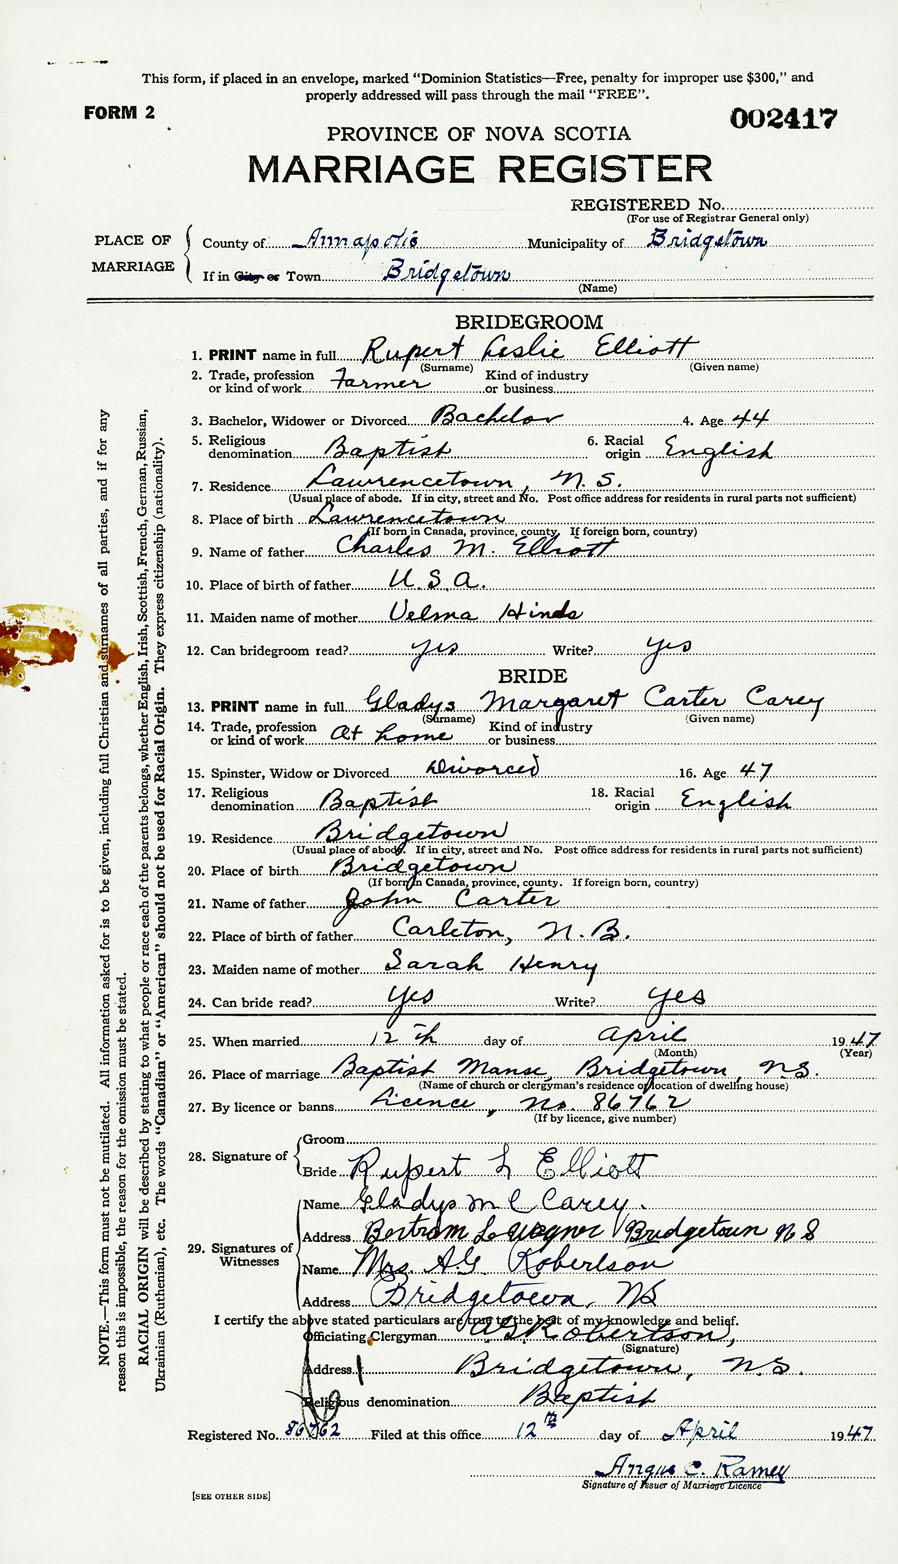 This form, if placed in an envelope, marked "Dominion Statistics—Free, penalty for improper use $300," and
properly addressed will pass through the mail "FREE".
FORM 2
002417
PROVINCE OF NOVA SCOTIA
MARRIAGE REGISTER
REGISTERED No.
(For use of Registrar General only)
PLACE OF MARRIAGE
County of Annapolis Municipality of Bridgetown
If in City or Town Bridgetown
(Name)
BRIDEGROOM
1. PRINT name in full Rupert Leslie Elliott
(Surname) (Given name)
2. Trade, profession or kind of work Farmer Kind of industry or business
3. Bachelor, Widower or Divorced Bachelor 4. Age 44
5. Religious denomination Baptist 6. Racial origin English
7. Residence Lawrencetown, N.S.
(Usual place of abode. If in city, street and No. Post office address for residents in rural parts not sufficient)
8. Place of birth Lawrencetown
(If born in Canada, province, county. If foreign born, country)
9. Name of father Charles M. Elliott
10. Place of birth of father U.S.A.
11. Maiden name of mother Velma Hinds
12. Can bridegroom read? yes Write? yes
BRIDE
13. PRINT name in full Gladys Margaret Carter Carey
(Surname) (Given name)
14. Trade, profession or kind of work At home Kind of industry or business
15. Spinster, Widow or Divorced Divorced 16. Age 47
17. Religious denomination Baptist 18. Racial origin English
19. Residence Bridgetown
(Usual place of abode. If in city, street and No. Post office address for residents in rural parts not sufficient)
20. Place of birth Bridgetown
(If born in Canada, province, county. If foreign born, country)
21. Name of father John Carter
22. Place of birth of father Carleton, N.B.
23. Maiden name of mother Sarah Henry
24. Can bride read? yes Write? yes
25. When married 12th day of April 1947
(Month) (Year)
26. Place of marriage Baptist Manse, Bridgetown, N.S.
(Name of church or clergyman's residence or location of dwelling house)
27. By licence or banns Licence, No. 86762
(If by licence, give number)
28. Signature of
Groom
Bride Rupert L Elliott
29. Signatures of Witnesses
Name Gladys M C Carey.
Address Bertram L Wagner Bridgetown N S
Name Mrs. A G Robertson
Address Bridgetown, NS
I certify the above stated particulars are true to the best of my knowledge and belief.
Officiating Clergyman A G Robertson,
(Signature)
Address Bridgetown, N.S.
Religious denomination Baptist
Registered No. 86762 Filed at this office 12th day of April 1947.
Angus C. Ramey
Signature of Issuer of Marriage Licence
[SEE OTHER SIDE]
NOTE.—This form must not be mutilated. All information asked for is to be given, including full Christian and surnames of all parties, and if for any
reason this is impossible, the reason for the omission must be stated.
RACIAL ORIGIN will be described by stating to what people or race each of the parents belongs, whether English, Irish, Scottish, French, German, Russian,
Ukrainian (Ruthenian), etc. The words "Canadian" or "American" should not be used for Racial Origin. They express citizenship (nationality).